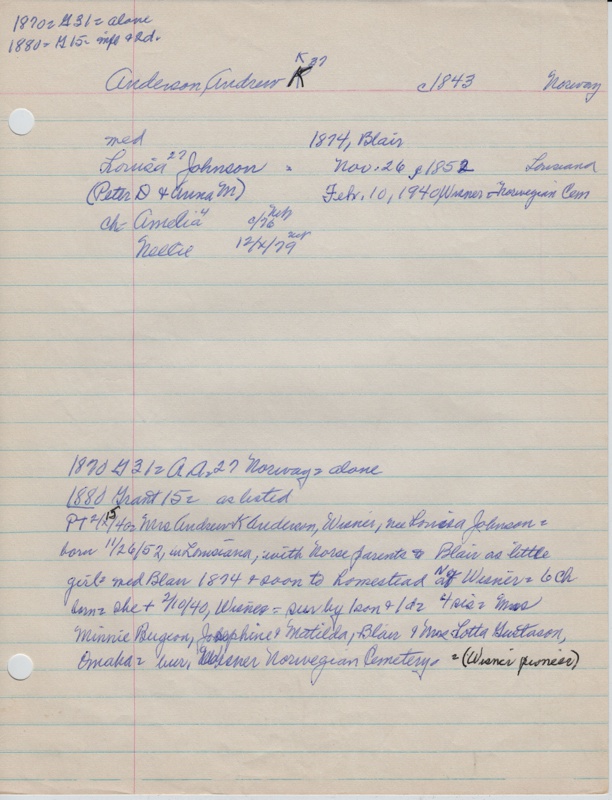 1870 = G 31 = alone
1880 = G 15 = inf & 2d.
Anderson, Andrew K 27 c1843 Norway
K
med 1874, Blair
Louisa 27 Johnson = Nov. 26, 1852 Louisiana
(Peter D & Anna M) Febr. 10, 1940 Wisner = Norwegian Cem
ch - Amelia 4 c/76 Neb
Nettie 12/x/79 Neb
1870 G 31 = A.A. 27 Norway = alone
1880 Grant 15 = as listed
PT 2/15/40 = Mrs Andrew K Anderson, Wisner, nee Louisa Johnson =
born 11/26/52, in Louisiana, with Norse parents to Blair as little
girl = med Blair 1874 & soon to homestead N of Wisner = 6 ch
born = she + 2/10/40, Wisner = sur by 1 son & 1 d = 4 sis = Mrs
Minnie, Josephine & Matilda, Blair & Mrs Lotta Gustason,
Omaha = bur, Wisner Norwegian Cemetery = (Wisner pioneer)